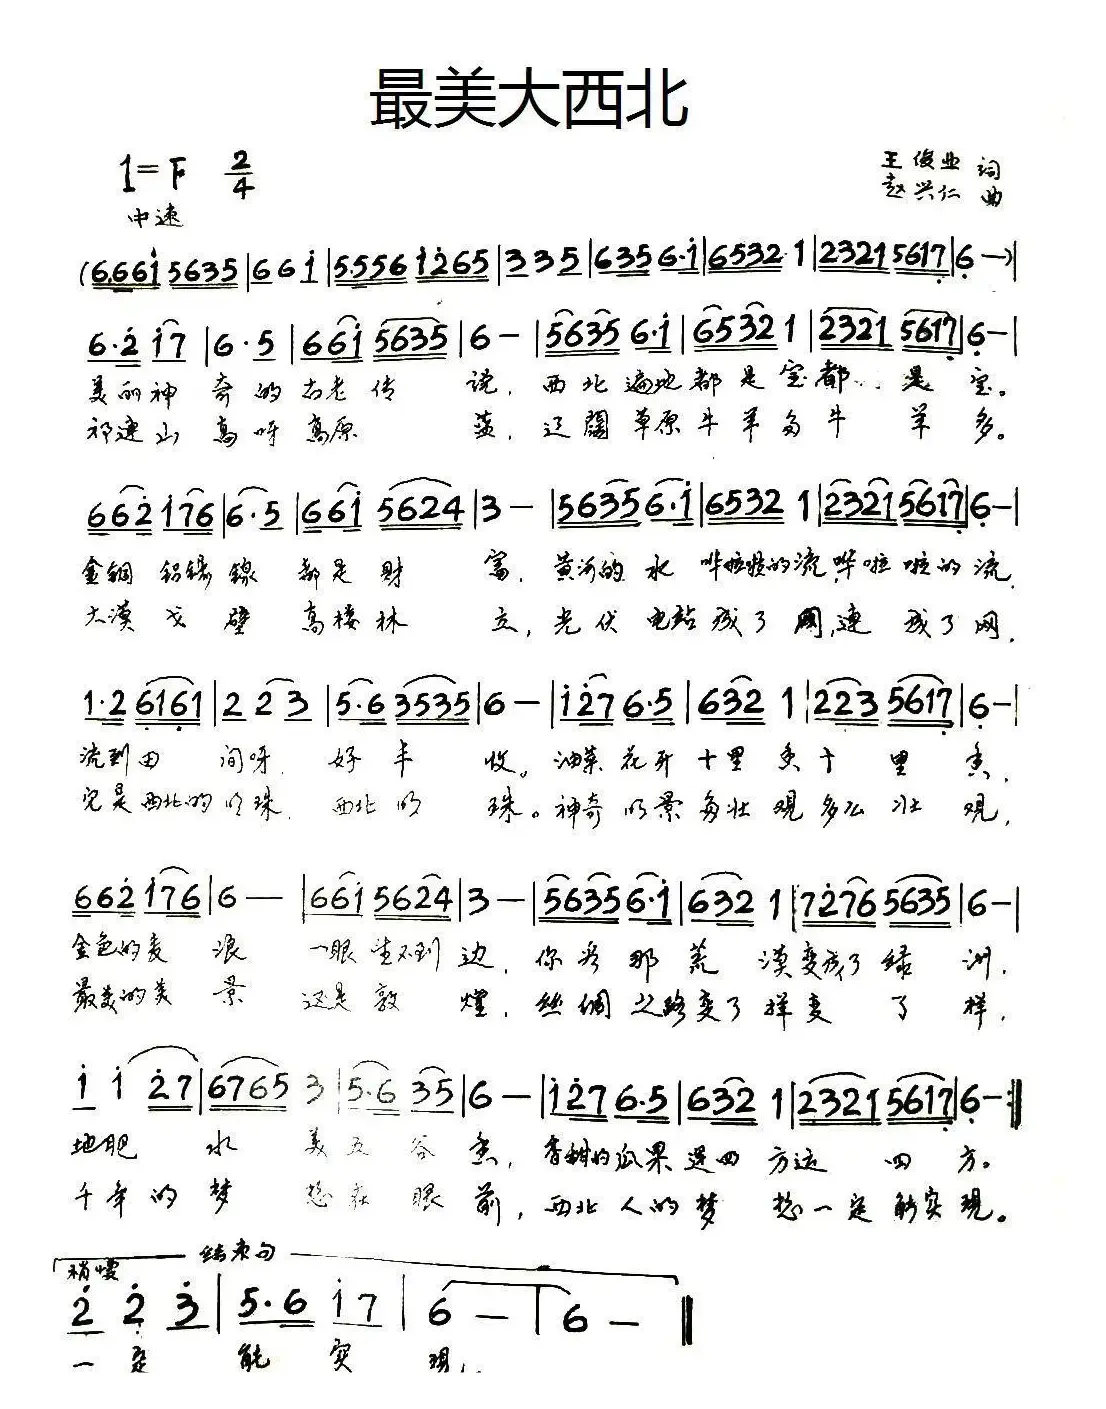 最美大西北
1=F 2/4
王俊业 词
赵兴仁 曲
中速
(6.661 5635|661|5556 1265|335|635 6·1|6532 1|2321 5617|6—)|
6·2 17|6·5|661 5635|6—|5635 6·1|6532 1|2321 5617|6—|
美丽神奇的古老传说，西北遍地都是宝都..是宝。
祁连山高呀高原蓝，辽阔草原牛羊多牛羊多。
662 176|6·5|661 5624|3—|5635 6·1|6532 1|2321 5617|6—|
金铜铝锡镍都是财富，黄河的水哗啦啦的流，哗啦啦的流，
大漠戈壁高楼林立，光伏电站成了网，连成了网，
1·2 6161|2 2 3|5·6 3535|6—|127 6·5|632 1|223 5617|6—|
流到田间呀，好丰收。油菜花开十里香十里香，
它是西北的明珠，西北的珠。神奇的景多壮观多么壮观，
662 176|6—|661 5624|3—|5635 6·1|632 1|7276 5635|6—|
金色的麦浪一眼望不到边，你看那荒漠变成了绿洲，
最美的美景这是敦煌，丝绸之路变了样变了样，
1 1 27|6765 3|5·6 35|6—|127 6·5|632 1|2321 5617|6—:‖
地肥水美五谷香，香甜的瓜果运四方运四方。
千年的梦想在眼前，西北人的梦想一定能实现。
结束句
稍慢
2 2 3|5·6 17|6—|6—‖
一定能实现，